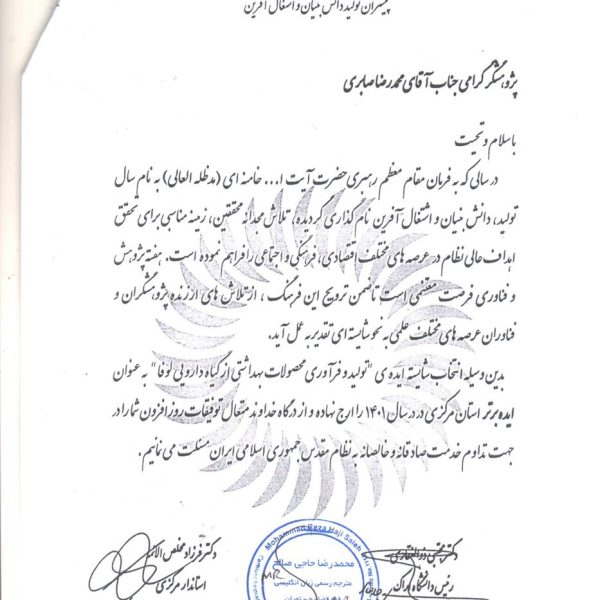 پیشران تولید دانش بنیان و اشتغال آفرین
پژوهشگر گرامی جناب آقای محمدرضا صابری
با سلام و تحیت
در سالی که به فرمان مقام معظم رهبری حضرت آیت ا... خامنه ای (مدظله العالی) به نام سال
تولید، دانش بنیان و اشتغال آفرین نام گذاری گردیده، تلاش مجدانه محققین، زمینه مناسبی برای تحقق
اهداف عالی نظام در عرصه های مختلف اقتصادی، فرهنگی و اجتماعی را فراهم نموده است. هفته پژوهش
و فناوری فرصت مغتنمی است تا ضمن ترویج این فرهنگ، از تلاش های ارزنده پژوهشگران و
فناوران عرصه های مختلف علمی به نحو شایسته ای تقدیر به عمل آید.
بدین وسیله انتخاب شایسته ایده ی "تولید و فرآوری محصولات بهداشتی از گیاه دارویی لوفا" به عنوان
ایده برتر استان مرکزی در سال ۱۴۰۱ را ارج نهاده و از درگاه خداوند متعال توفیقات روزافزون شما را در
جهت تداوم خدمت صادقانه و خالصانه به نظام مقدس جمهوری اسلامی ایران مسئلت می نمائیم.
دکتر مجتبی ذوالفقاری
رئیس دانشگاه اراک
Mohammad Reza Haji Saleh
محمدرضا حاجی صالح
مترجم رسمی زبان انگلیسی
دکتر فرزاد مخلص الائمه
استاندار مرکزی